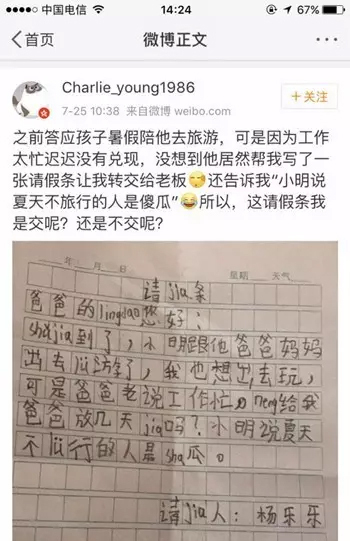 中国电信
14:24
67%
首页
微博正文
Charlie_young1986
7-25 10:38 来自微博 weibo.com
+关注
之前答应孩子暑假陪他去旅游，可是因为工作
太忙迟迟没有兑现，没想到他居然帮我写了一
张请假条让我转交给老板😪还告诉我“小明说
夏天不旅行的人是傻瓜”😂所以，这请假条我
是交呢？还是不交呢？
年 月 日 星期 天气
请jia条
爸爸的lingdao您好：
shǔjia到了，小明跟他爸爸妈妈
出去lǚ游了，我也想出去玩，
可是爸爸老说工作忙。neng给我
爸爸放几天jia吗？小明说夏天
不lǚ行的人是sha瓜。
请jia人：杨乐乐